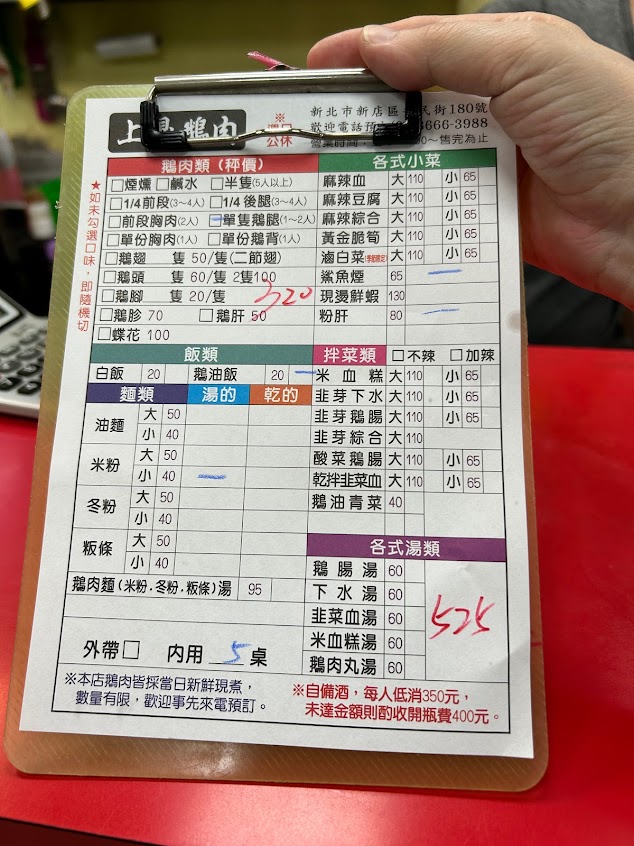 上鼎鵝肉
※
週日
公休
新北市新店區 民街180號
歡迎電話預 666-3988
營業時間， ～售完為止
★如未勾選口味，即隨機切
鵝肉類（秤價）
□煙燻 □鹹水 □半隻(5人以上)
□1/4前段(3～4人) □1/4後腿(3～4人)
□前段胸肉(2人) □單隻鵝腿(1～2人)
□單份胸肉(1人) □單份鵝背(1人)
□鵝翅 隻 50/隻(二節翅)
□鵝頭 隻 60/隻 2隻100
□鵝腳 隻 20/隻
320
□鵝胗 70 □鵝肝 50
□蝶花 100
各式小菜
麻辣血 大 110 小 65
麻辣豆腐 大 110 小 65
麻辣綜合 大 110 小 65
黃金脆筍 大 110 小 65
滷白菜(季節限定) 大 110 小 65
鯊魚煙 65
現燙鮮蝦 130
粉肝 80
飯類
白飯 20 鵝油飯 20
麵類 湯的 乾的
油麵 大 50
小 40
米粉 大 50
小 40
冬粉 大 50
小 40
粄條 大 50
小 40
鵝肉麵(米粉.冬粉.粄條)湯 95
拌菜類 □不辣 □加辣
米血糕 大 110 小 65
韭芽下水 大 110 小 65
韭芽鵝腸 大 110 小 65
韭芽綜合 大 110
酸菜鵝腸 大 110 小 65
乾拌韭菜血 大 110 小 65
鵝油青菜 40
各式湯類
鵝腸湯 60
下水湯 60
韭菜血湯 60
米血糕湯 60
鵝肉丸湯 60
525
外帶□ 內用 5 桌
※本店鵝肉皆採當日新鮮現煮，
數量有限，歡迎事先來電預訂。
※自備酒，每人低消350元，
未達金額則酌收開瓶費400元。